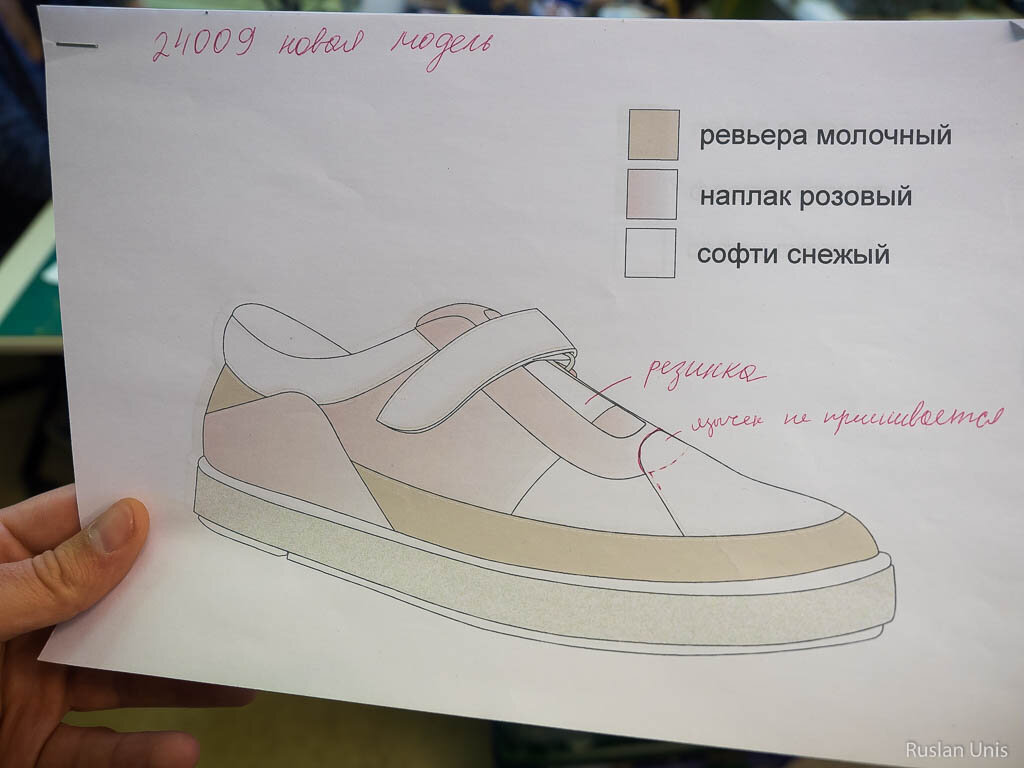 24009 новая модель
ревьера молочный
наплак розовый
софти снежый
резинка
язычек не пришивается
Ruslan Unis